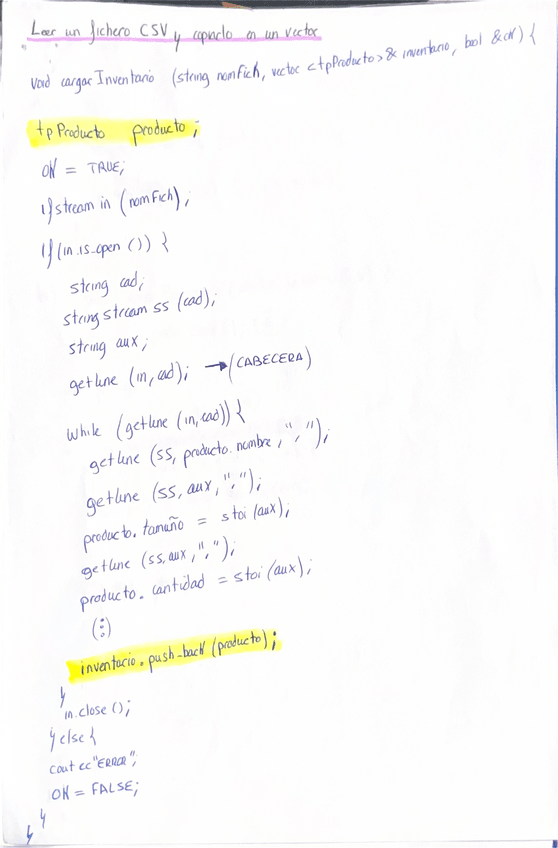 Leer un fichero CSV y copiarlo en un vector
void cargar Inventario (string nomFich, vector <tpProducto>& inventario, bool &ok) {
tpProducto producto;
OK = TRUE;
ifstream in (nomFich);
if (in.is_open ()) {
string cad;
stringstream ss (cad);
string aux;
getline (in, cad); → (CABECERA)
while (getline (in, cad)) {
getline (ss, producto.nombre, ",");
getline (ss, aux, ",");
producto.tamaño = stoi (aux);
getline (ss, aux, ",");
producto.cantidad = stoi (aux);
(:)
inventario.push_back (producto);
}
in.close ();
} else {
cout << "ERROR";
OK = FALSE;
}
}